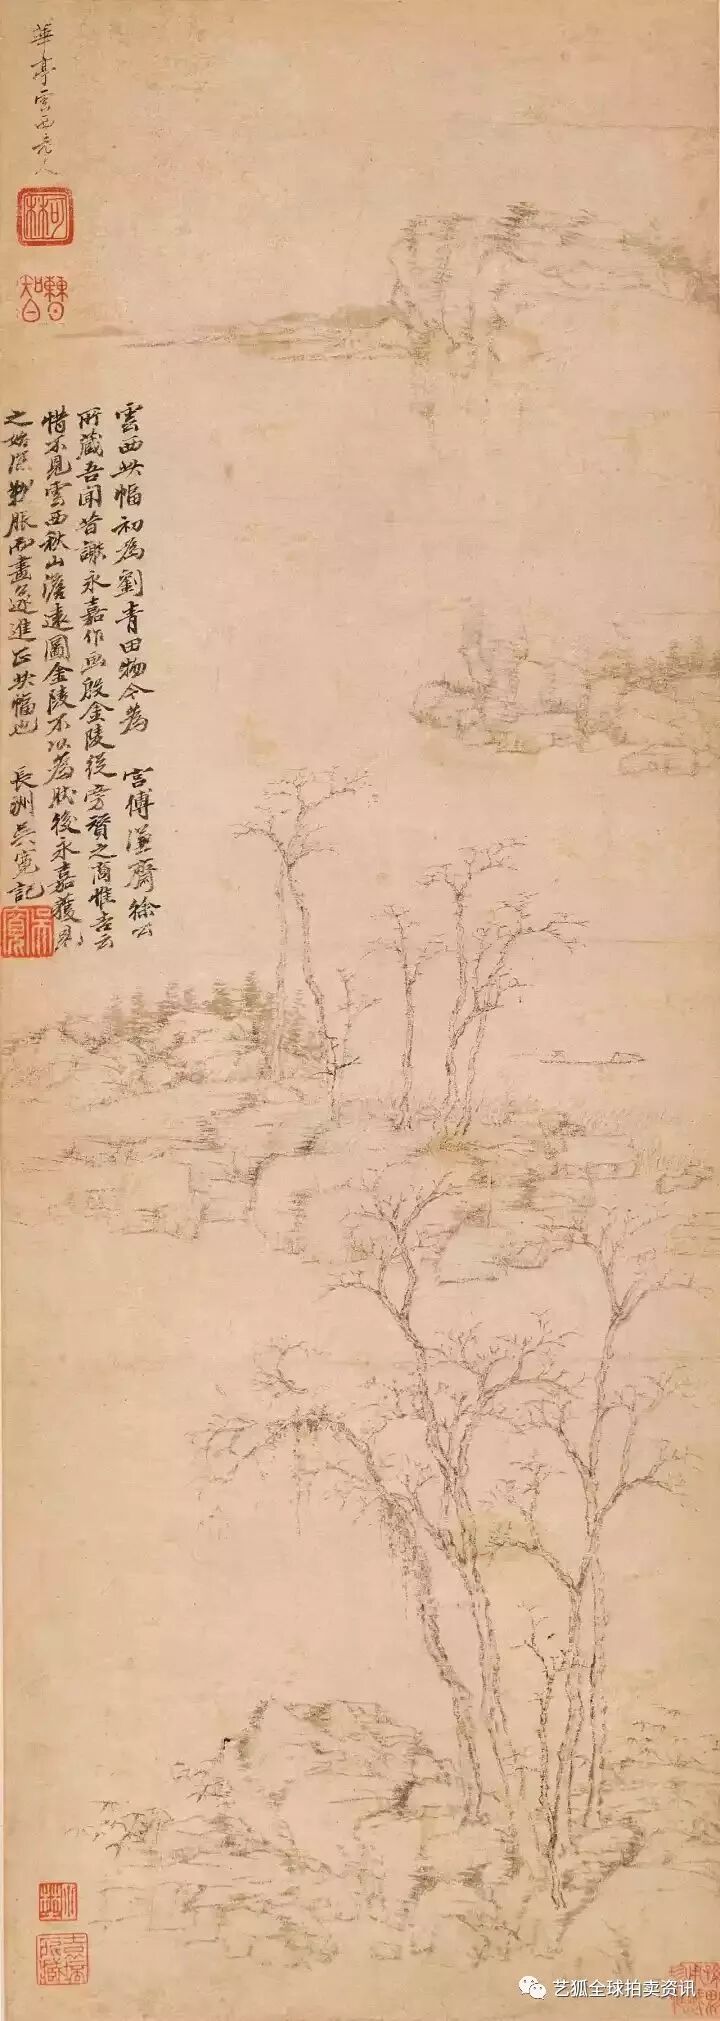 華亭雲西老人
雲西此幅初為劉青田物今為 宮傅謙齋徐公
所藏吾聞昔謝永嘉作畫殷金陵從旁贊之商惟吉云
惜不見雲西秋山澹遠圖金陵不以為然後永嘉獲見
之始深歎服而畫遂進正此幅也 長洲吳寬記
吳寬
艺狐全球拍卖资讯